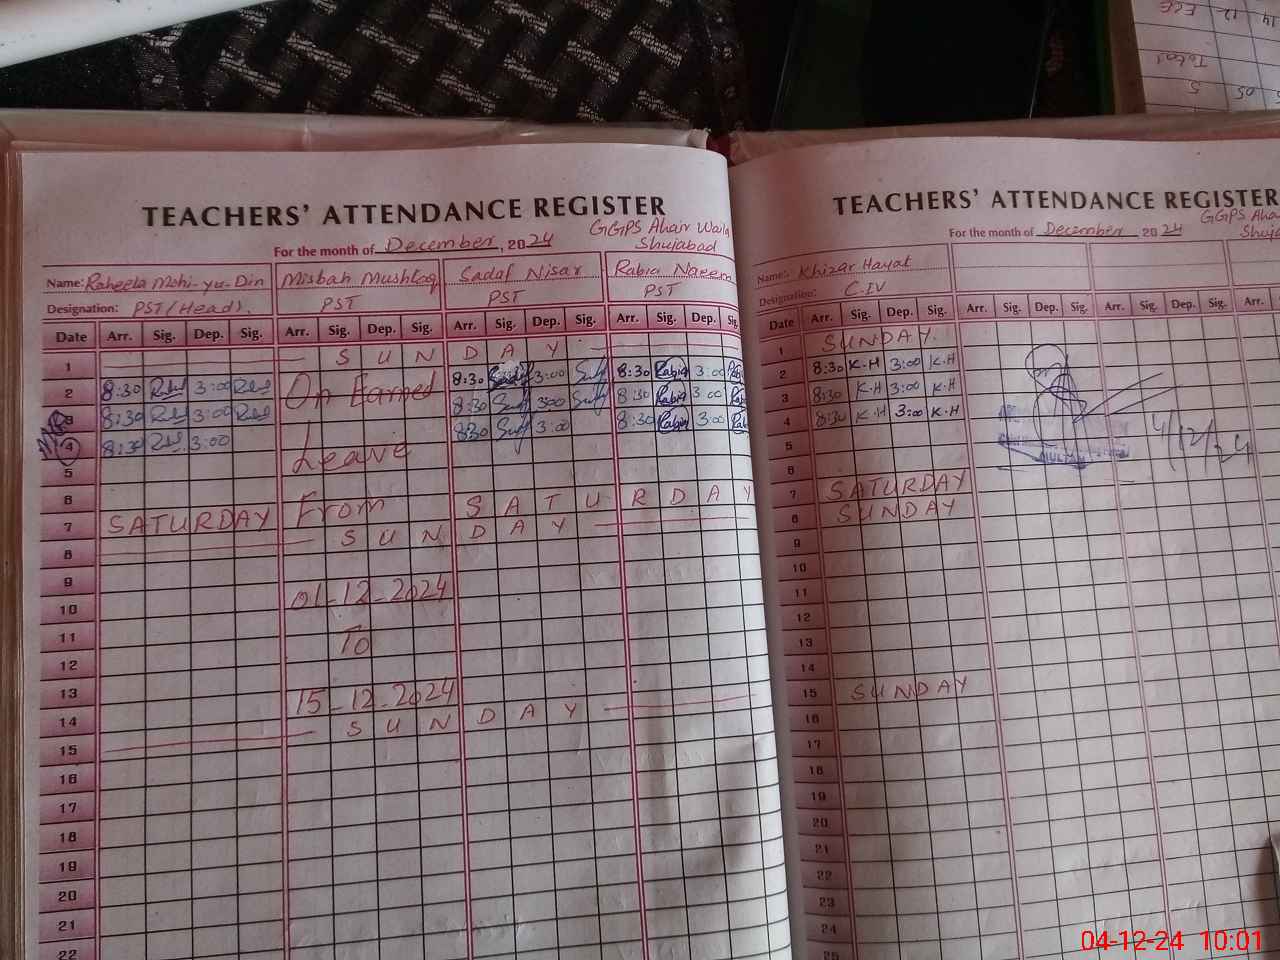 TEACHERS' ATTENDANCE REGISTER
GGPS Ahair Waila
Shujabad
For the month of December, 2024
Name: Raheela Mohi-yu-Din Misbah Mushtaq Sadaf Nisar Rabia Naeem
Designation: PST (Head). PST PST PST
Date Arr. Sig. Dep. Sig. Arr. Sig. Dep. Sig. Arr. Sig. Dep. Sig. Arr. Sig. Dep. Sig.
1 SUNDAY
2 8:30 3:00 On Earned 8:30 3:00 8:30 Rabia 3:00
3 8:30 3:00 8:30 3:00 8:30 Rabia 3:00
4 8:30 3:00 Leave 8:30 3:00 8:30 Rabia 3:00
5
6 From
7 SATURDAY SATURDAY
8 SUNDAY
9
10 01-12-2024
11 To
12
13
14 15-12-2024
15 SUNDAY
16
17
18
19
20
21
22
TEACHERS' ATTENDANCE REGISTER
GGPS Aha
Shuja
For the month of December 2024
Name:- Khizar Hayat
Designation: C.IV
Date Arr. Sig. Dep. Sig. Arr. Sig. Dep. Sig. Arr. Sig. Dep. Sig. Arr.
1 SUNDAY.
2 8:30 K.H 3:00 K.H
3 8:30 K.H 3:00 K.H
4 8:30 K.H 3:00 K.H
4/12/24
5
6
7 SATURDAY
8 SUNDAY
9
10
11
12
13
14
15 SUNDAY
16
17
18
19
20
21
22
23
24
25
ECE 12 14
Total
5 05
04-12-24 10:01